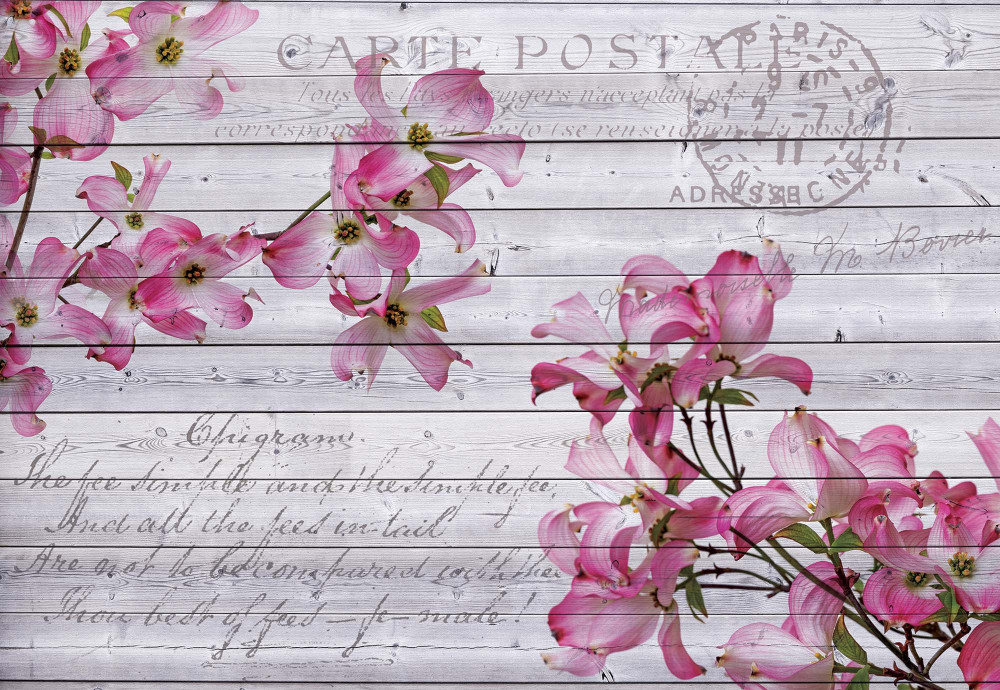 CARTE POSTALE
Tous les Pays étrangers n'acceptant pas la
correspondance au recto (se renseigner à la poste)
PARIS
ADRESSE
Mademoiselle M Bovier
Epigram.
The fee simple and the simple fee,
And all the fees in tail
Are not to be compared with thee
Thou best of fees — fe-male!